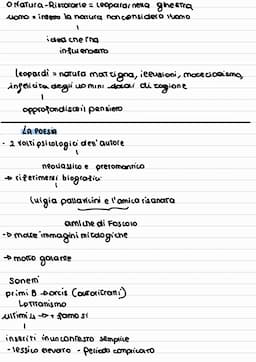 o Natura - Ristorarle = leopardi nella ginestra
uomo = interno la natura non considera l'uomo
idea che ha
influenzato
Leopardi = natura matrigna, illusioni, materialismo,
infelicità degli uomini dotati di ragione
approfondisce il pensiero
LA POESIA
- 2 volti psicologici dell'autore
neoclassico e preromantico
→ riferimenti biografici
luigia pallavicini e l'amica risanata
amiche di Foscolo
-> molte immagini mitologiche
-> molto galante
Sonetti
primi 8 -> Ortis (autoritratti)
ultimi 4 -> + famosi
inseriti in un contesto semplice
- lessico elevato - periodo complicato